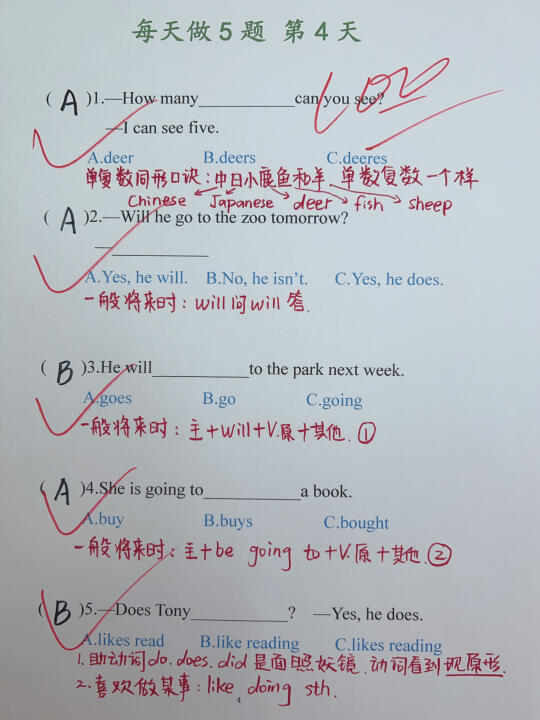 每天做5题 第4天
( A )1.—How many__________can you see?
100
—I can see five.
A.deer B.deers C.deeres
单复数同形口诀:中日小鹿鱼和羊,单数复数一个样
Chinese Japanese deer fish sheep
( A )2.—Will he go to the zoo tomorrow?
—__________
A.Yes, he will. B.No, he isn't. C.Yes, he does.
一般将来时:will问will答.
( B )3.He will__________to the park next week.
A.goes B.go C.going
一般将来时:主+will+V.原+其他.①
( A )4.She is going to__________a book.
A.buy B.buys C.bought
一般将来时:主+be going to+V.原+其他.②
( B )5.—Does Tony__________? —Yes, he does.
A.likes read B.like reading C.likes reading
1.助动词do.does.did是面照妖镜,动词看到现原形.
2.喜欢做某事:like doing sth.
4